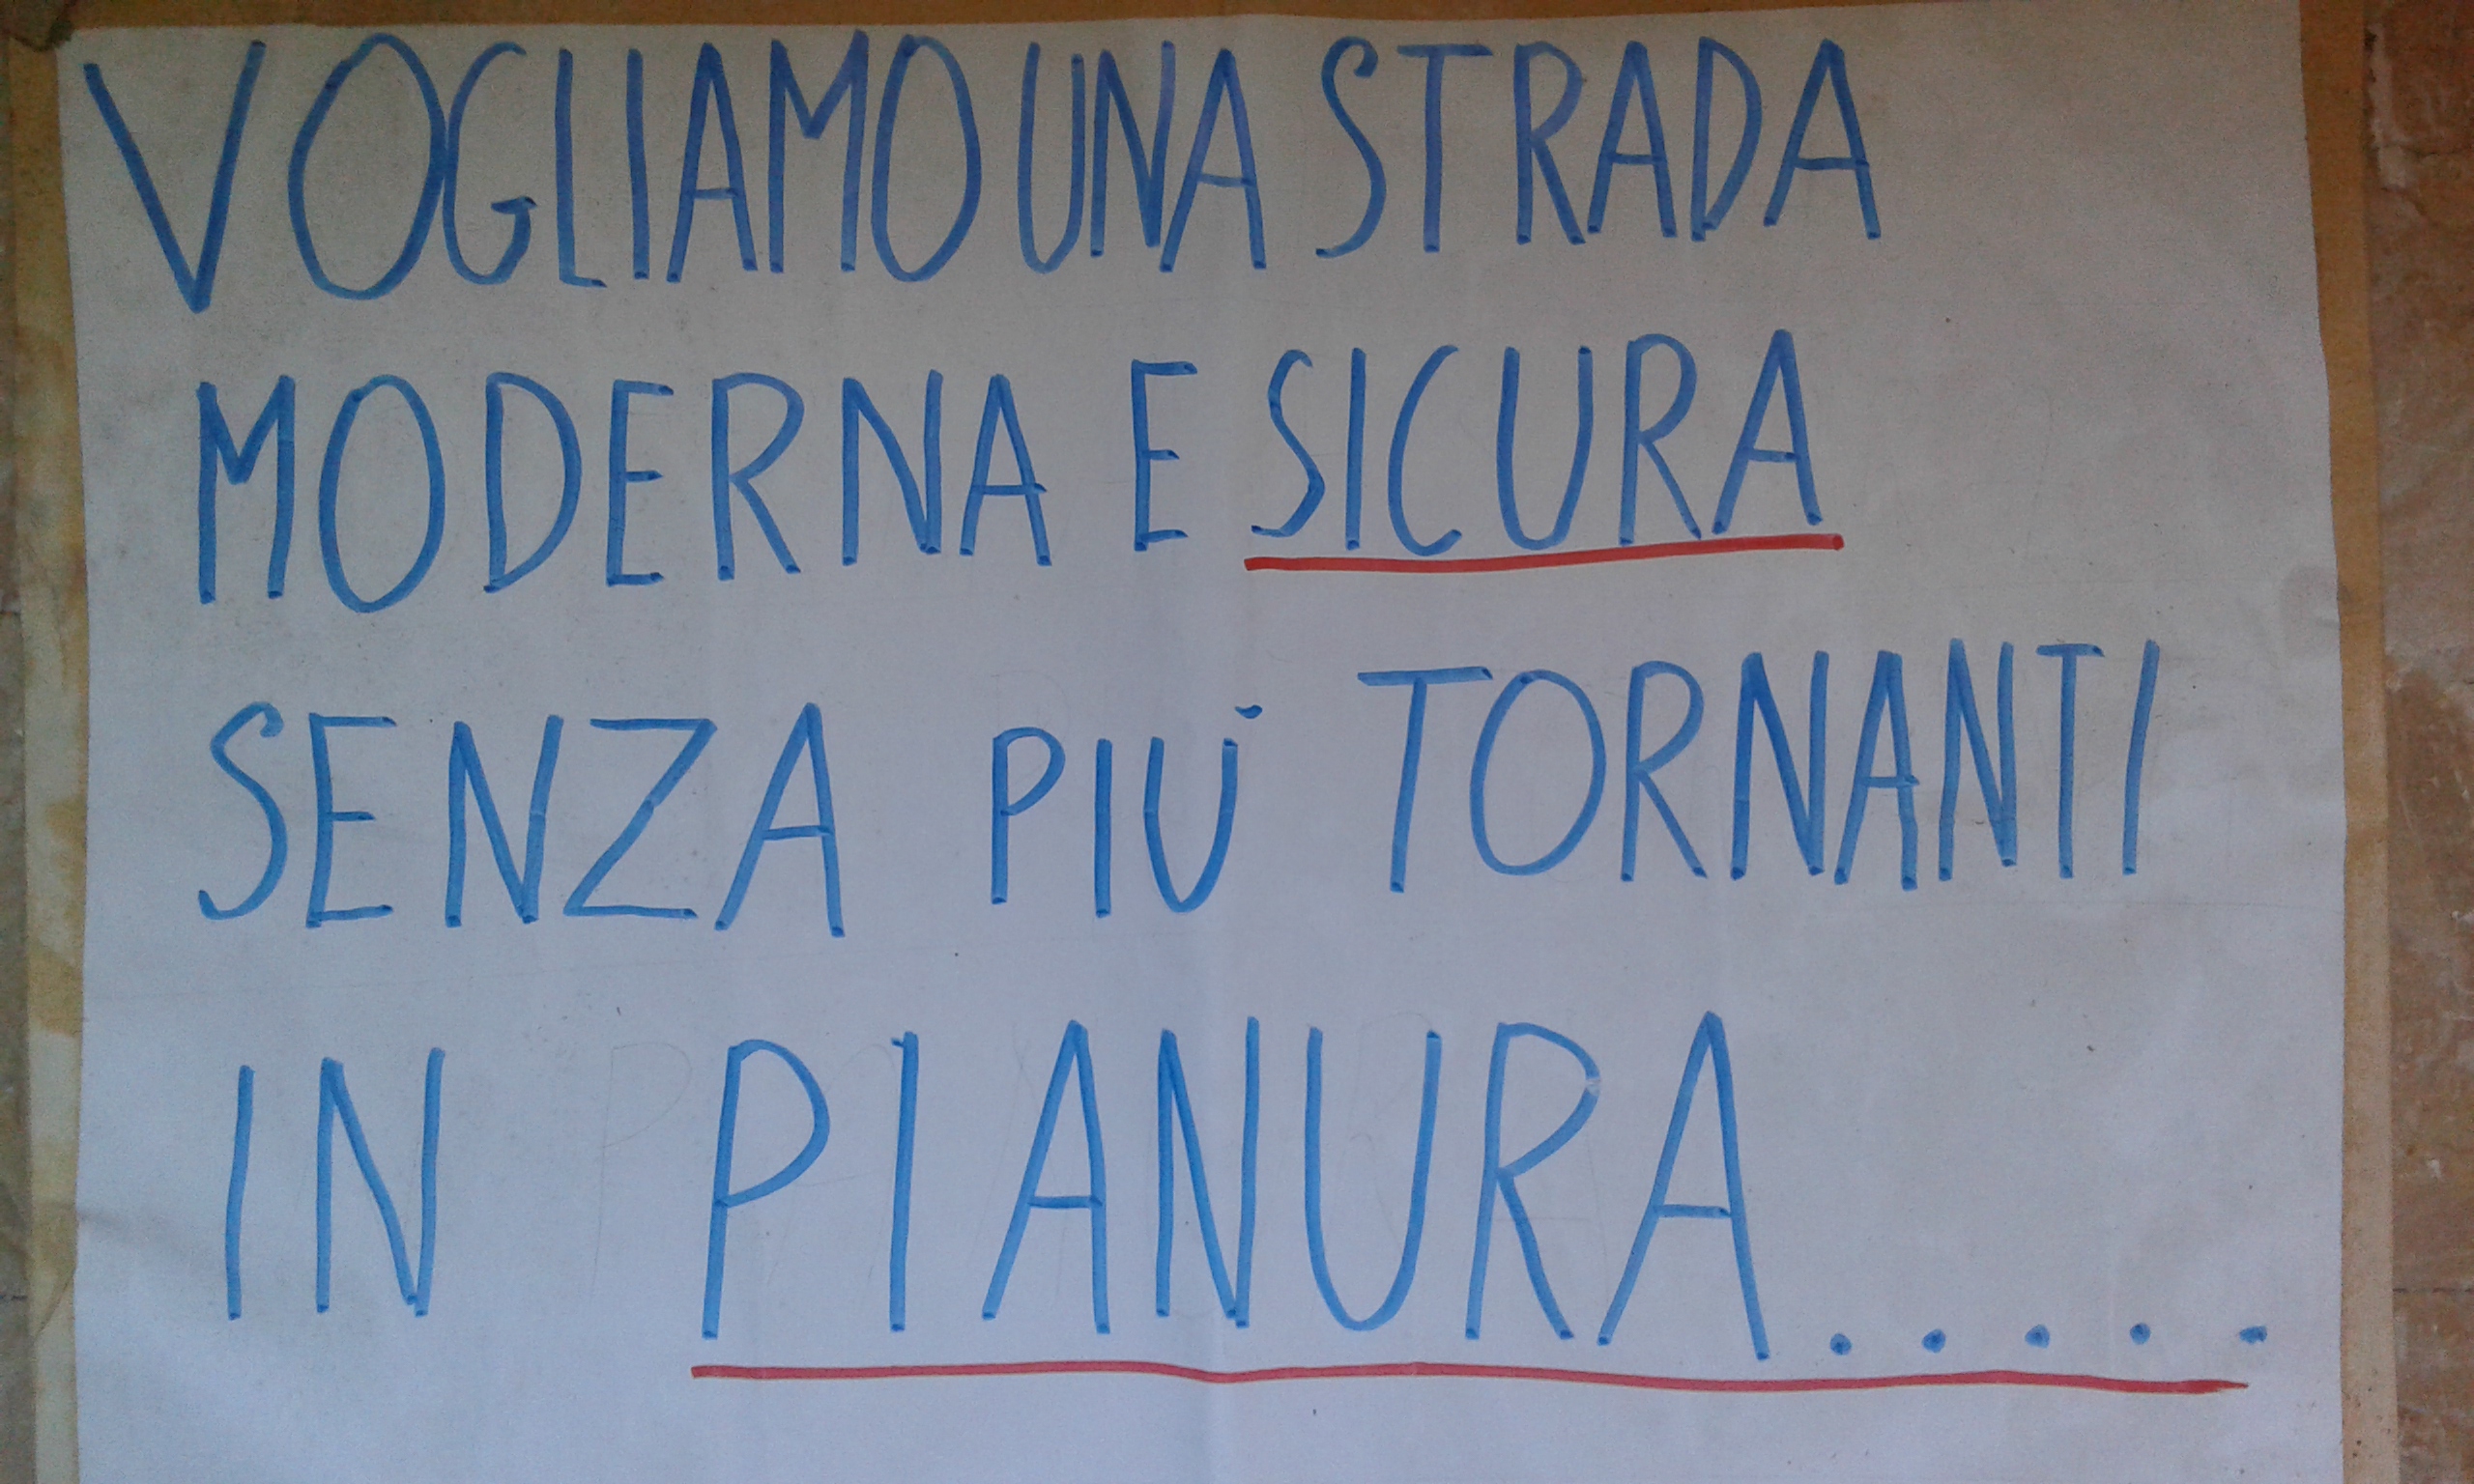 VOGLIAMO UNA STRADA
MODERNA E SICURA
SENZA PIÙ TORNANTI
IN PIANURA.....